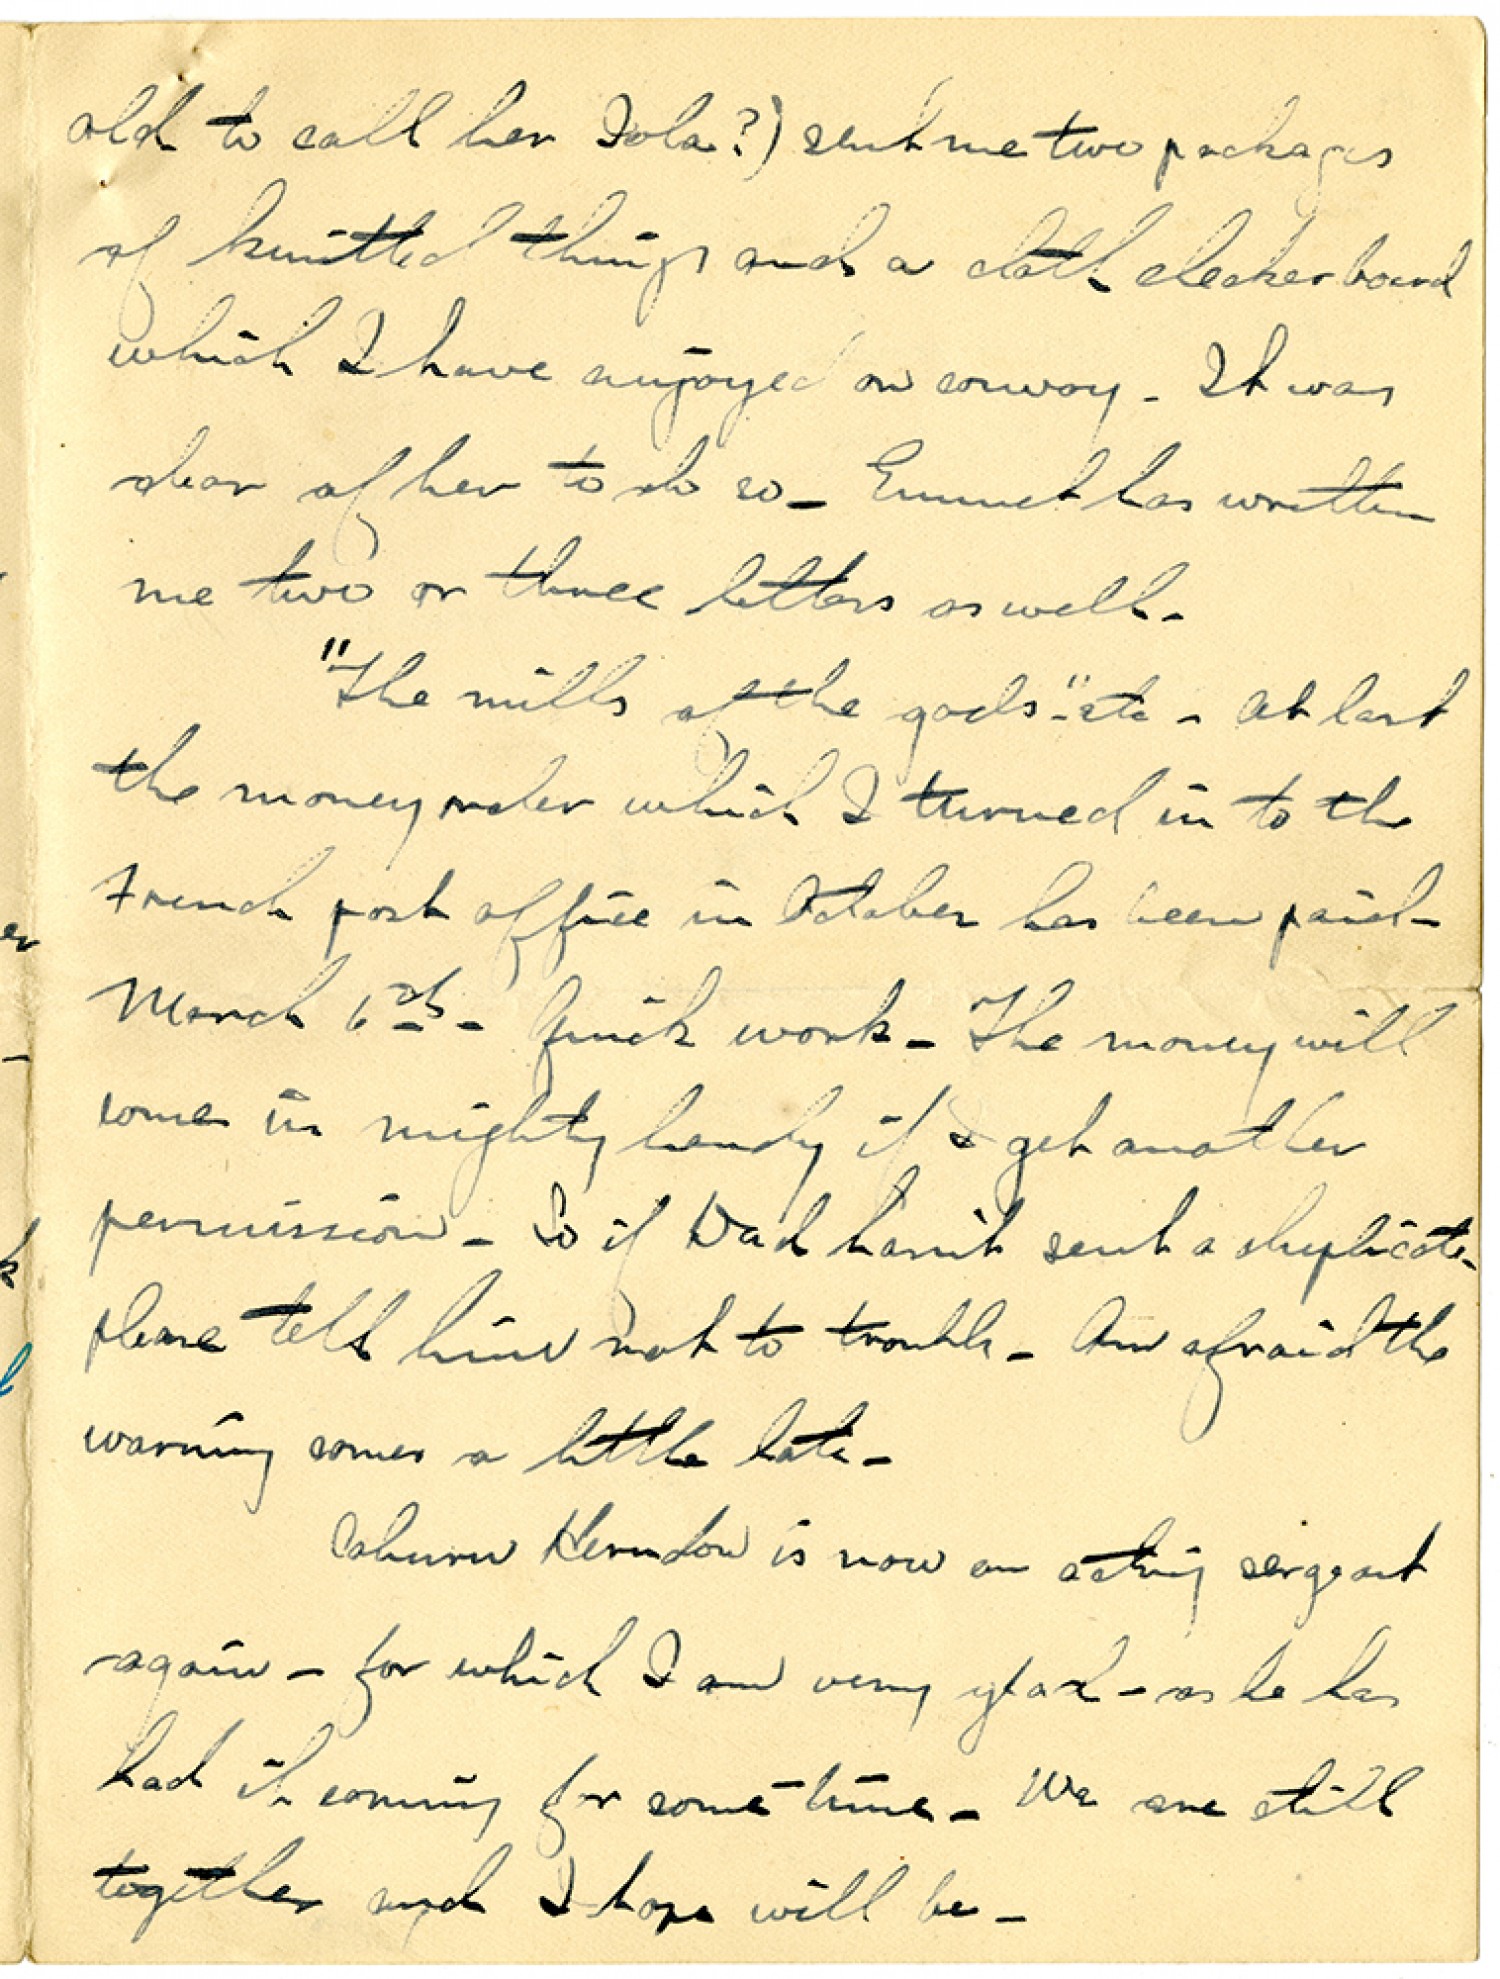 old to call her Iola?) sent me two packages
of knitted things and a cloth checker board
which I have enjoyed on convoy - It was
dear of her to do so - Emmet has written
me two or three letters as well -
"The mills of the gods" - etc - At last
the money order which I turned in to the
French post office in October has been paid -
March 6th - Quick work - The money will
come in mighty handy if I get another
permission - So if Dad hasn't sent a duplicate -
please tell him not to trouble - Am afraid the
warning comes a little late -
Herndon is now an acting sergeant
again - for which I am very glad - as he has
had it coming for some time - We are still
together and I hope will be -
er
-
k